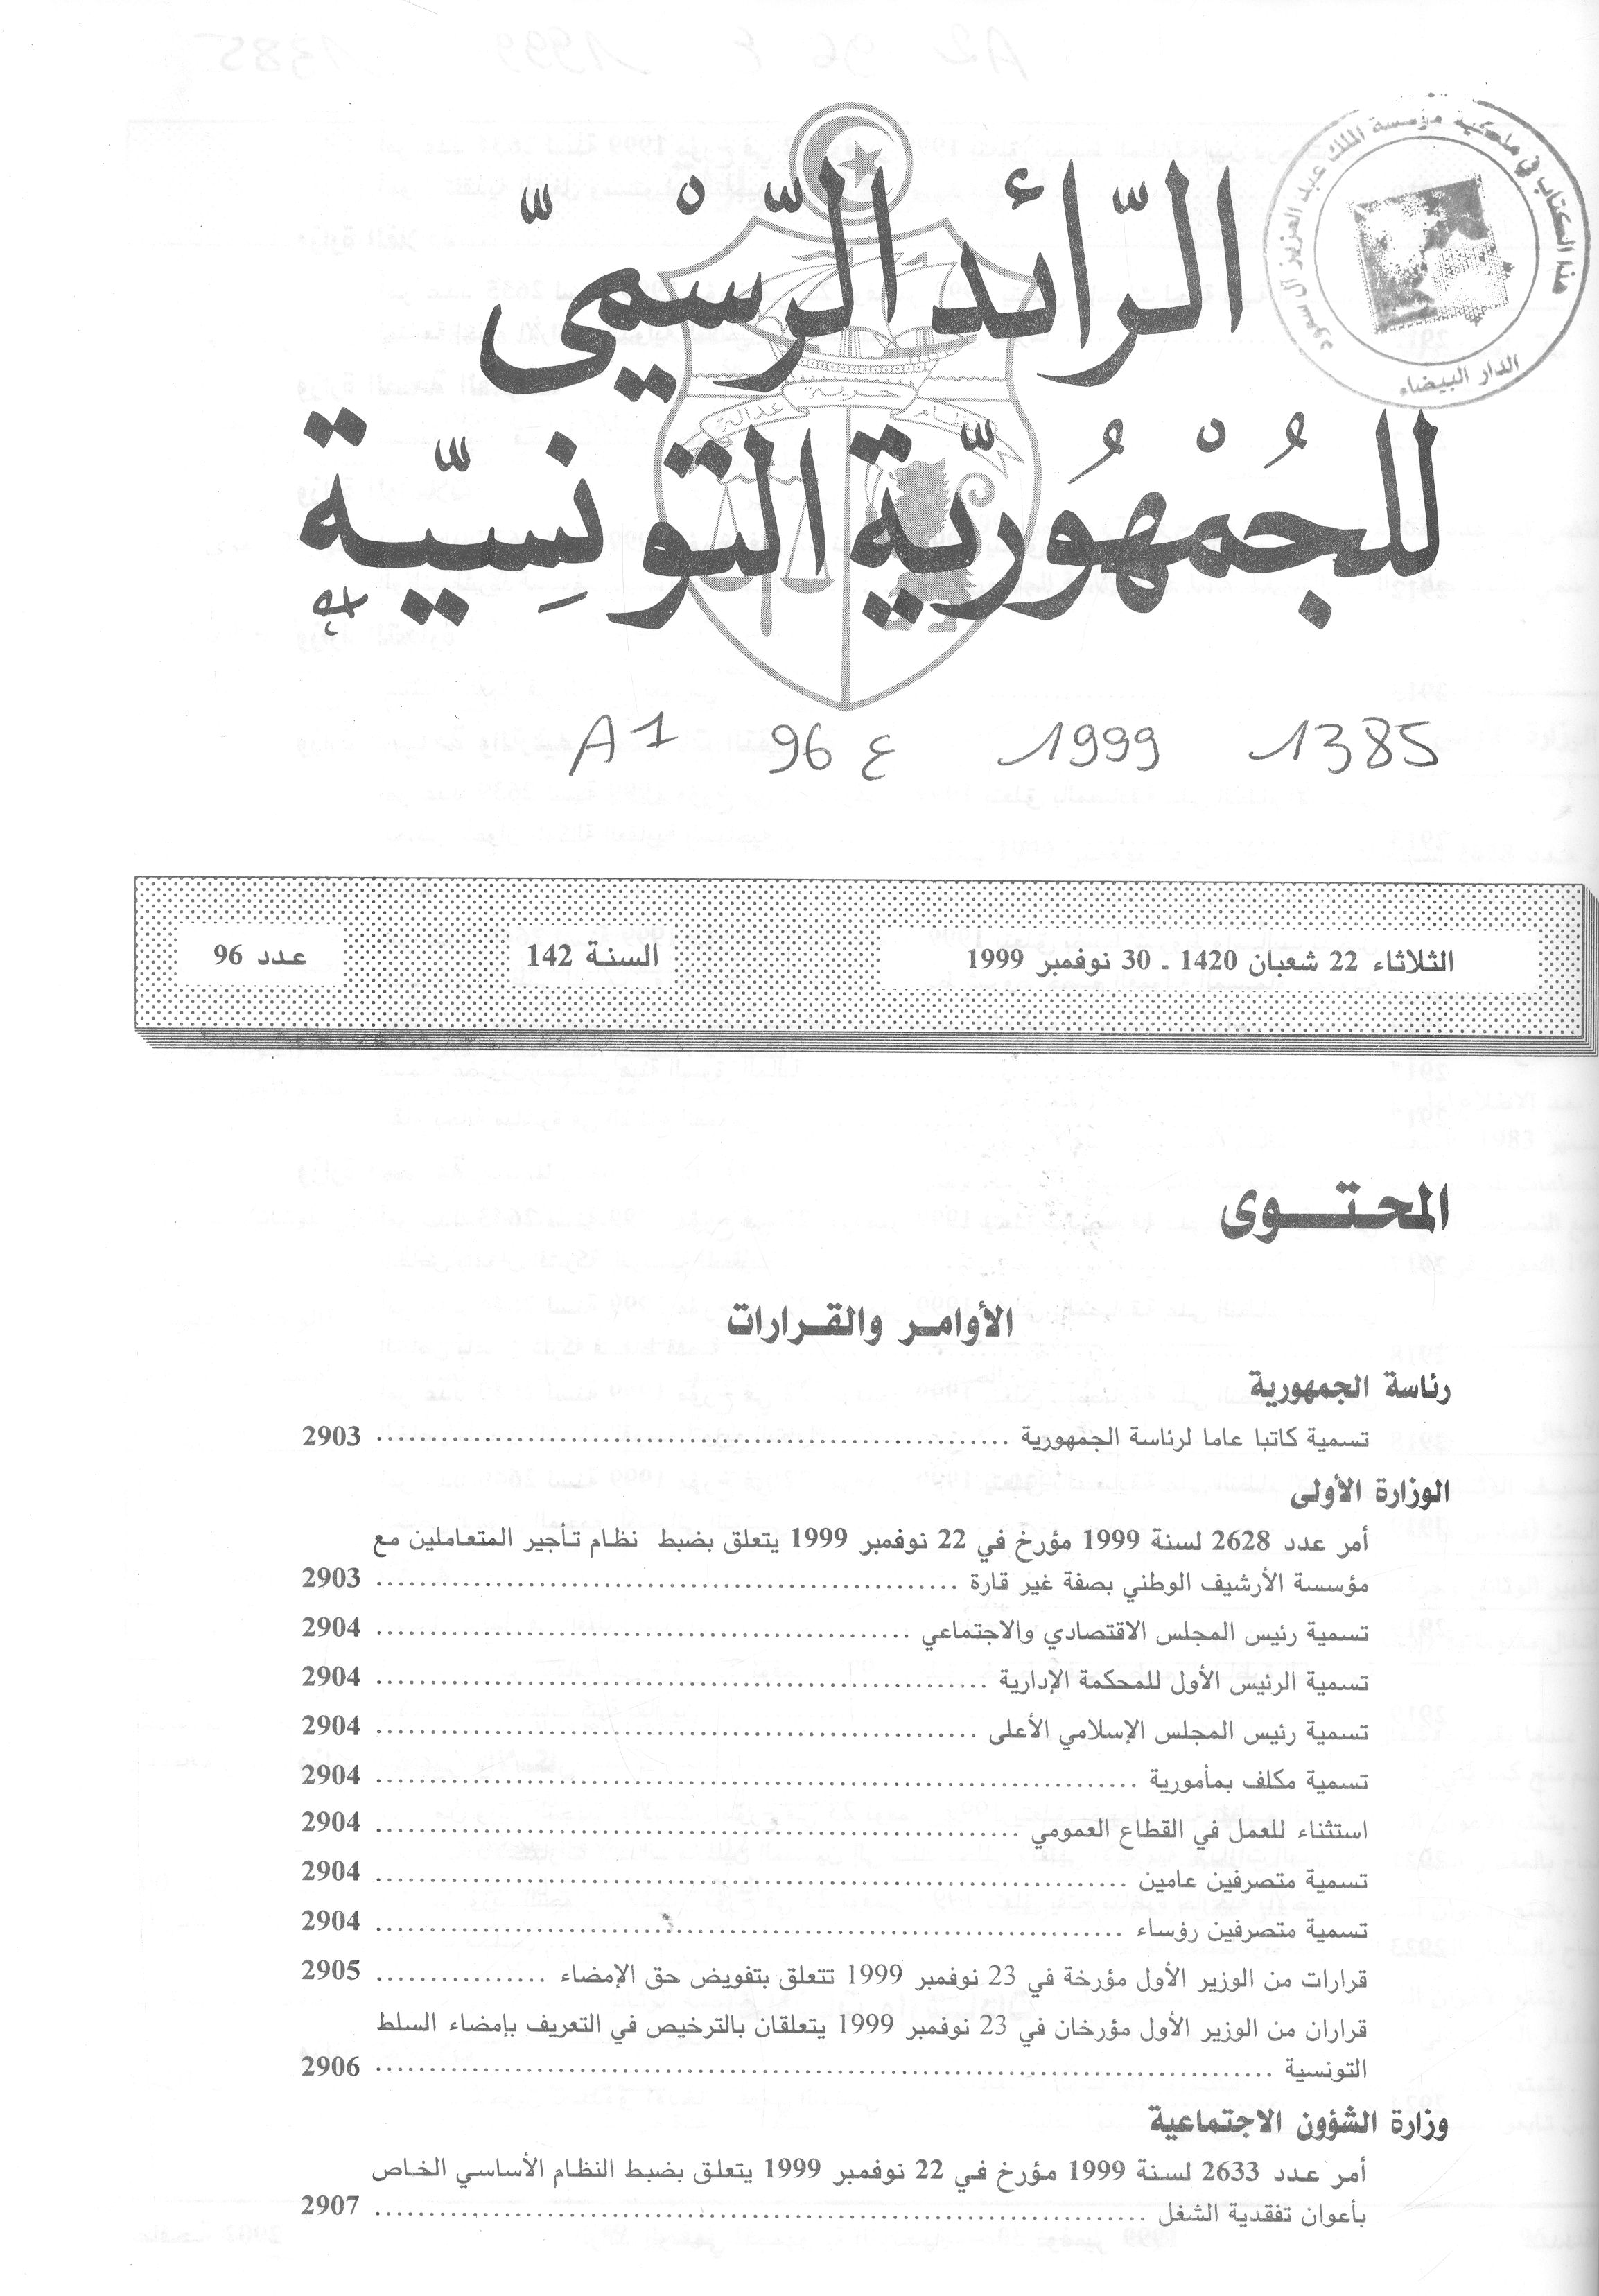 الرّائد الرّسْميّ
للجُمْهُوريّة التّونِسيّة
نظام حرية عدالة
هذا الكتاب في ملكية مؤسسة الملك عبد العزيز آل سعود
الدار البيضاء
1385 1999 ع 96 A1
الثلاثاء 22 شعبان 1420 ـ 30 نوفمبر 1999
السنة 142
عدد 96
المحتوى
الأوامر والقرارات
رئاسة الجمهورية
تسمية كاتبا عاما لرئاسة الجمهورية ........ 2903
الوزارة الأولى
أمر عدد 2628 لسنة 1999 مؤرخ في 22 نوفمبر 1999 يتعلق بضبط نظام تأجير المتعاملين مع
مؤسسة الأرشيف الوطني بصفة غير قارة ........ 2903
تسمية رئيس المجلس الاقتصادي والاجتماعي ........ 2904
تسمية الرئيس الأول للمحكمة الإدارية ........ 2904
تسمية رئيس المجلس الإسلامي الأعلى ........ 2904
تسمية مكلف بمأمورية ........ 2904
استثناء للعمل في القطاع العمومي ........ 2904
تسمية متصرفين عامين ........ 2904
تسمية متصرفين رؤساء ........ 2904
قرارات من الوزير الأول مؤرخة في 23 نوفمبر 1999 تتعلق بتفويض حق الإمضاء ........ 2905
قراران من الوزير الأول مؤرخان في 23 نوفمبر 1999 يتعلقان بالترخيص في التعريف بإمضاء السلط
التونسية ........ 2906
وزارة الشؤون الاجتماعية
أمر عدد 2633 لسنة 1999 مؤرخ في 22 نوفمبر 1999 يتعلق بضبط النظام الأساسي الخاص
بأعوان تفقدية الشغل ........ 2907